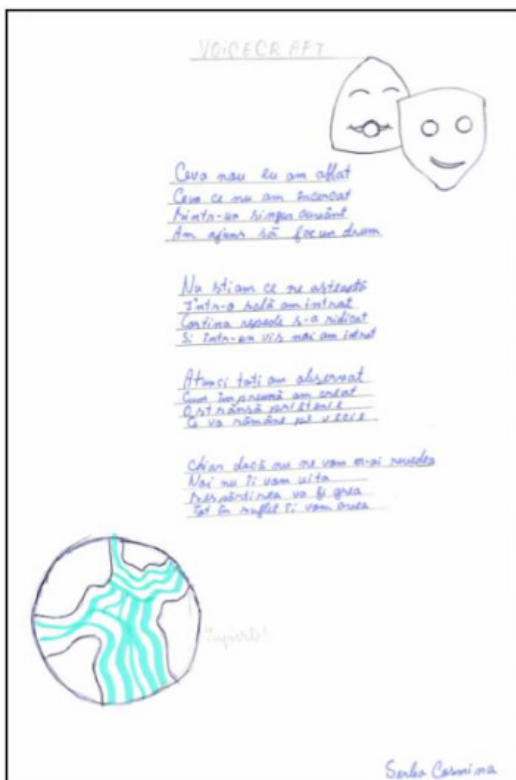 VOICECRAFT
Ceva nou eu am aflat
Ceva ce nu am încercat
Printr-un singur cuvânt
Am ajuns să fac un drum
Nu știam ce ne așteaptă
Într-o sală am intrat
Cortina repede s-a ridicat
Și într-un vis noi am intrat
Atunci toți am observat
Cum împreună am creat
O strânsă prietenie
Ce va rămâne pe vecie
Chiar dacă nu ne vom m-ai revedea
Noi nu îi vom uita
Despărțirea va fi grea
Tot în suflet îi vom avea
Serba Cosmina